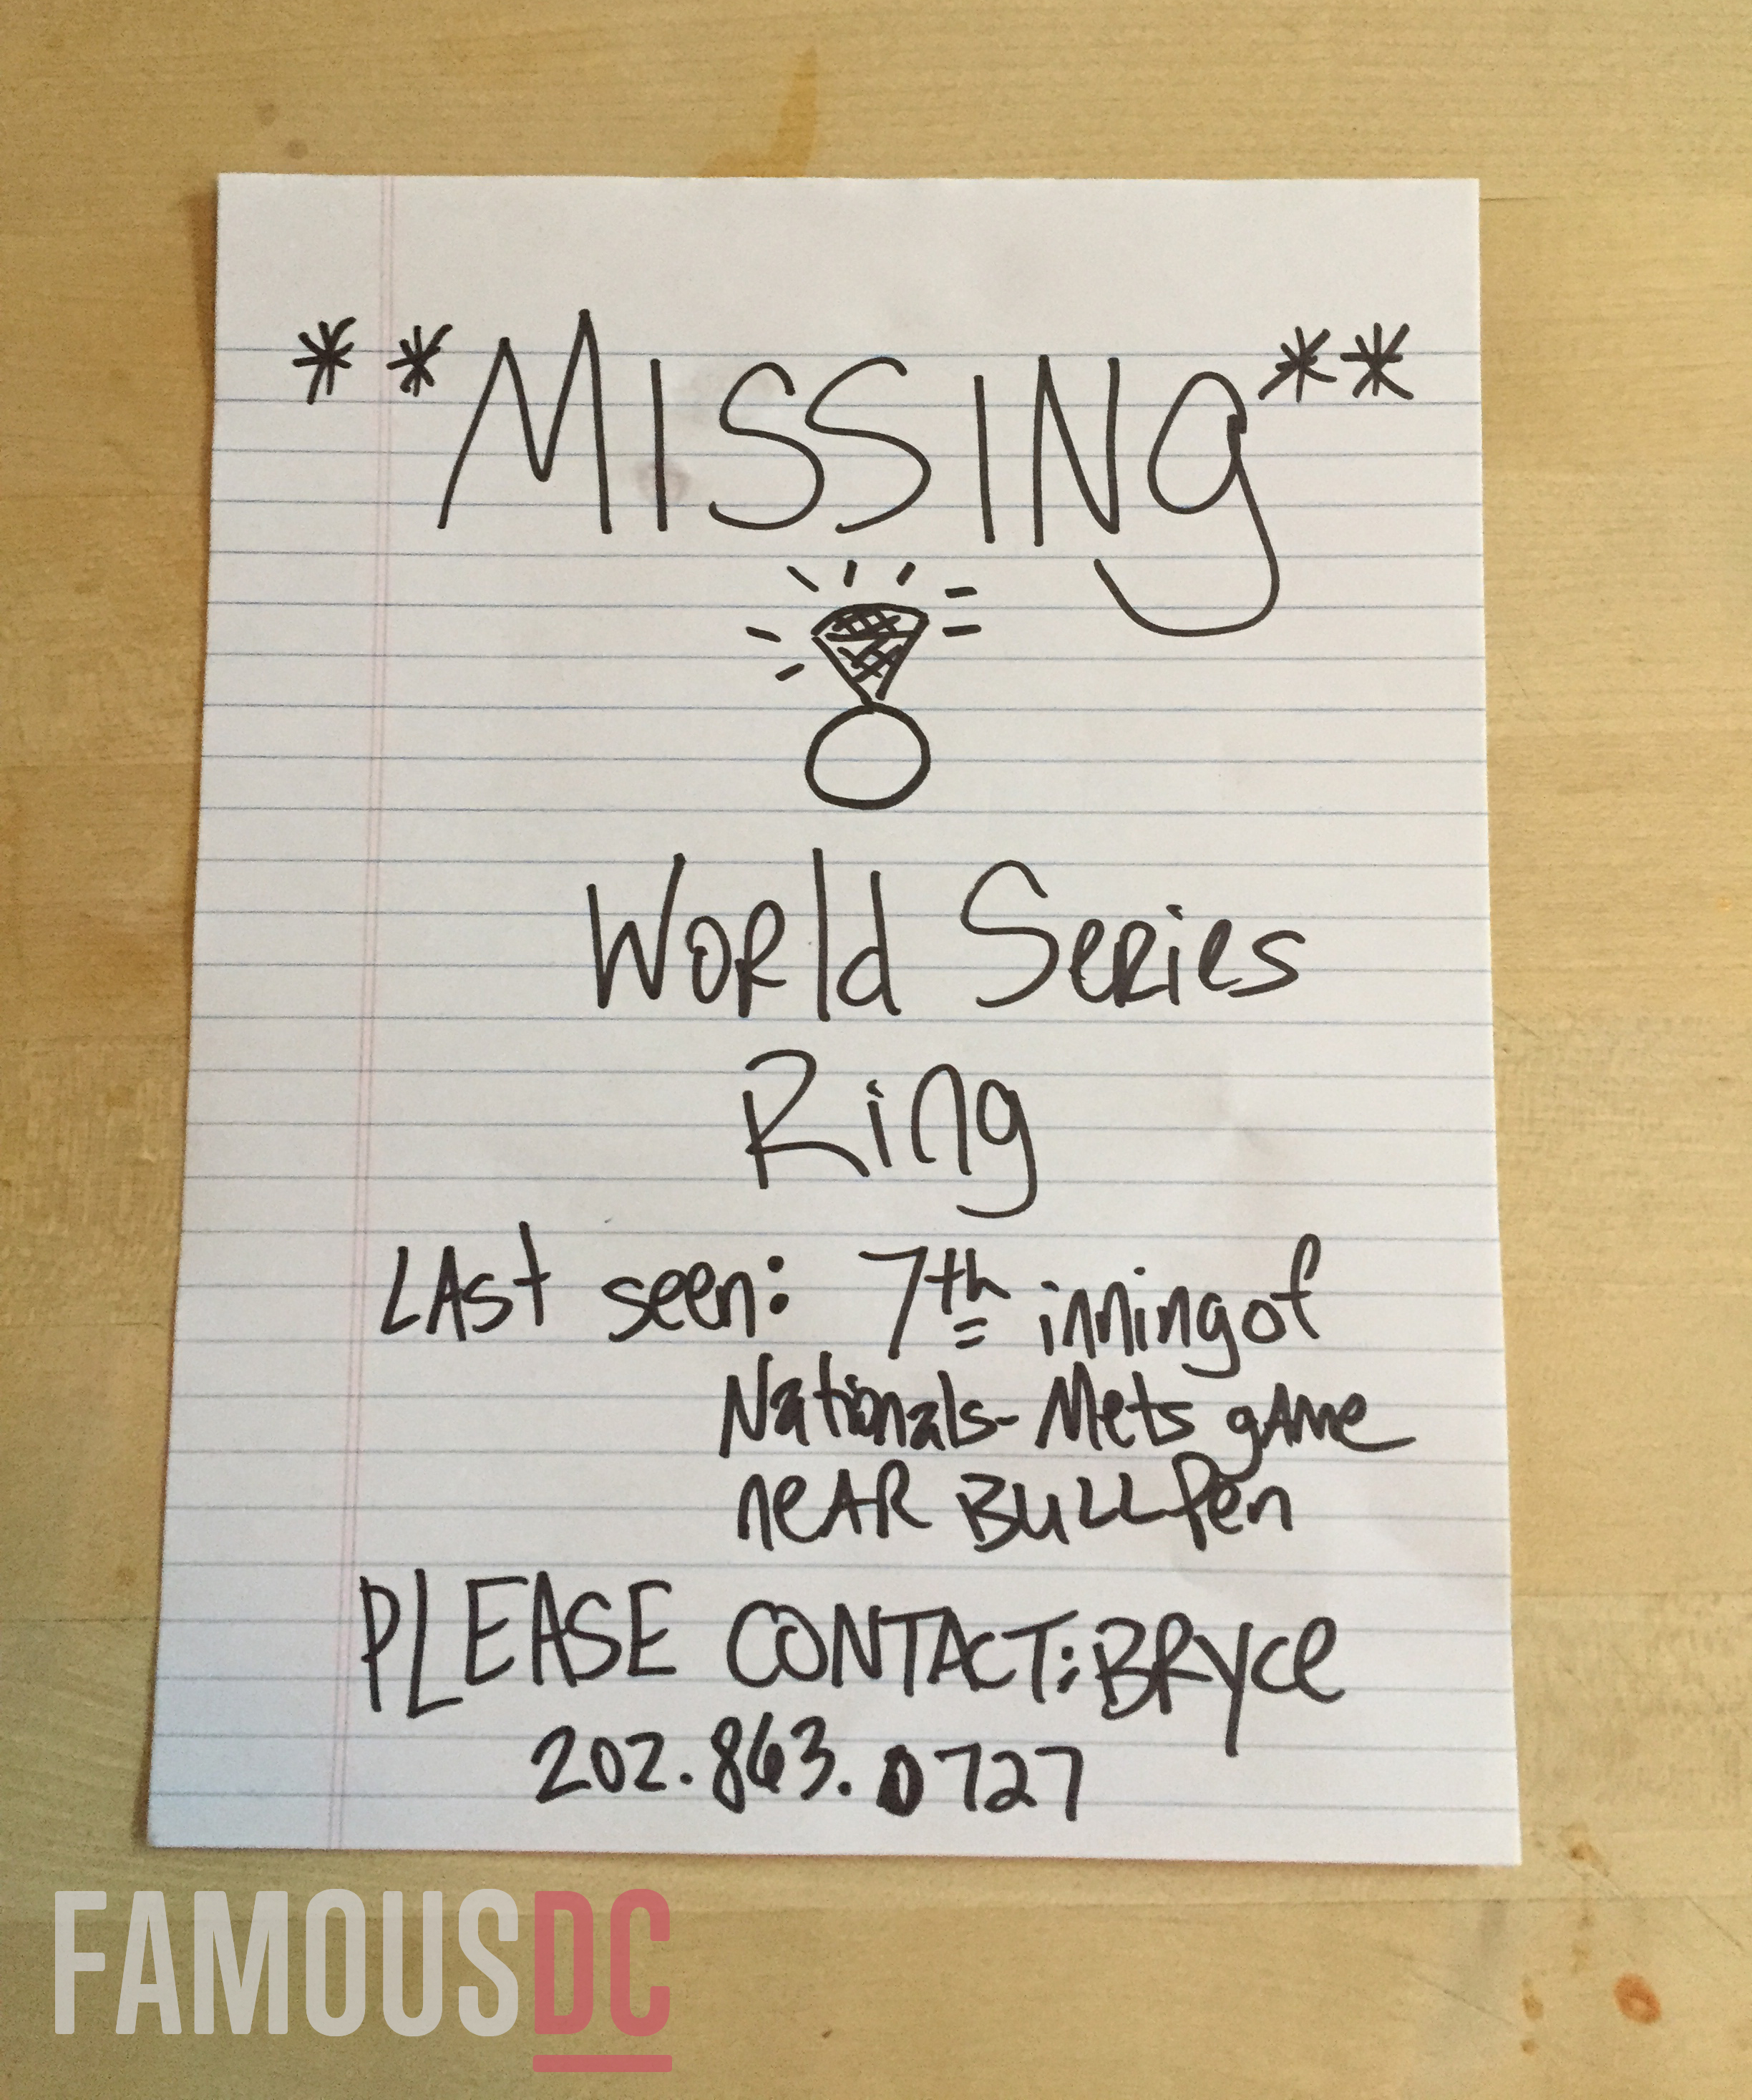 **MISSINg**
WORld SeRies
Ring
LAst seen: 7th inning of
Nationals-Mets gAme
neAR BULLPen
PLEASE CONTACT: BRyce
202.863.0727
FAMOUSDC